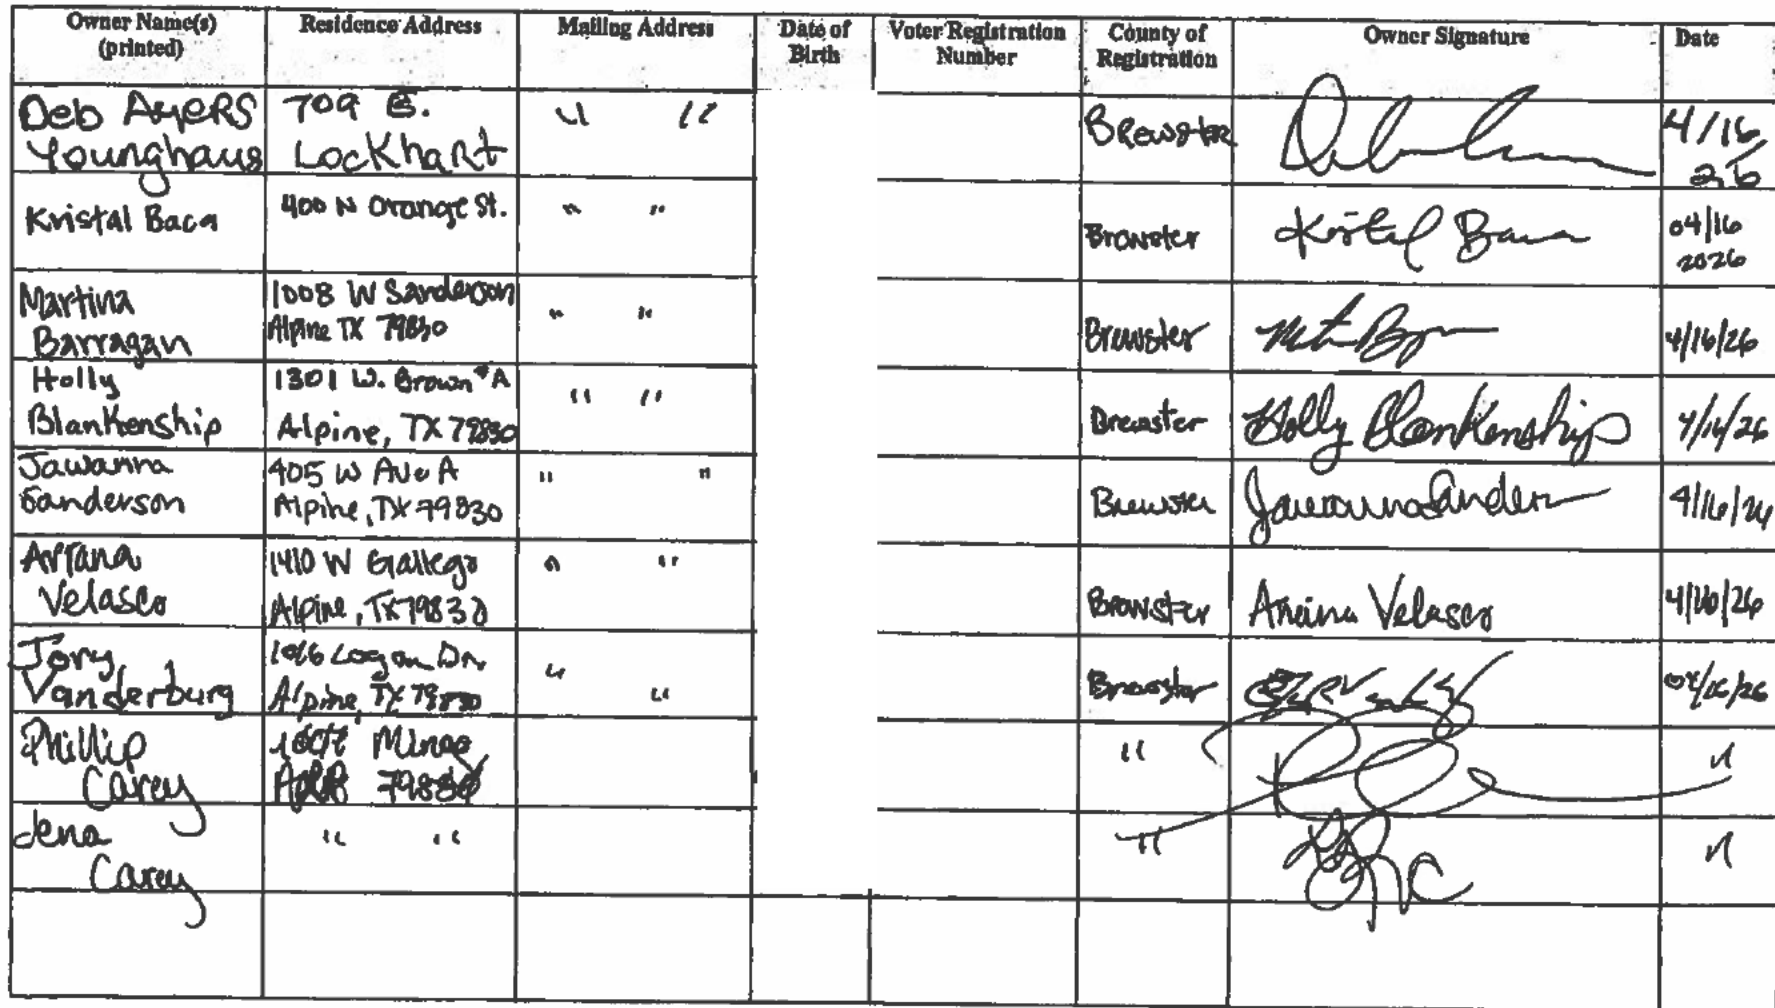 Owner Name(s) (printed) Residence Address Mailing Address Date of Birth Voter Registration Number County of Registration Owner Signature Date
Deb Ayers Younghaus 709 E. Lockhart " " Brewster 4/16/26
Kristal Baca 400 N Orange St. " " Brewster Kristal Baca 04/16 2026
Martina Barragan 1008 W Sanderson Alpine TX 79830 " " Brewster 4/16/26
Holly Blankenship 1301 W. Brown #A Alpine, TX 79830 " " Brewster Holly Blankenship 4/16/26
Jawanna Sanderson 405 W Ave A Alpine, TX 79830 " " Brewster Jawanna Sanderson 4/16/26
Ariana Velasco 1410 W Gallego Alpine, TX 79830 " " Brewster Ariana Velasco 4/16/26
Jory Vanderburg Logan Dr. Alpine, TX 79830 " " Brewster 04/16/26
Phillip Carey 79830 " "
Jena Carey " " " "